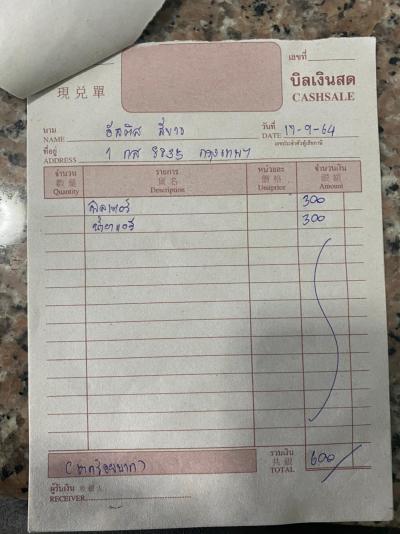 เลขที่
現兑單
บิลเงินสด
CASHSALE
นาม
NAME อีซูซุ สีขาว
วันที่
DATE 17-9-64
เลขประจำตัวผู้เสียภาษี
ที่อยู่
ADDRESS 1 กส 8835 กรุงเทพฯ
จำนวน รายการ หน่วยละ จำนวนเงิน
數量 貨名 價格 銀額
Quantity Description Uniprice Amount
300
300
(หกร้อยบาท)
รวมเงิน
共銀
TOTAL 600
ผู้รับเงิน
RECEIVER